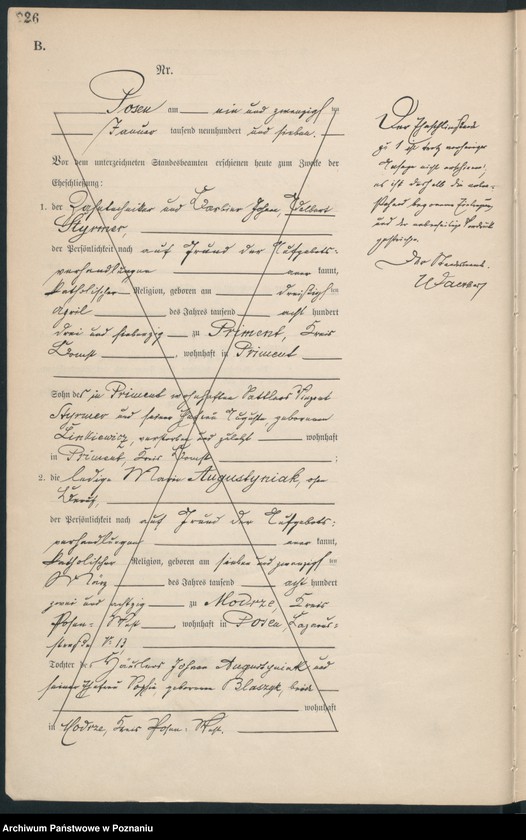 226
B.
Nr.
Posen am ein und zwanzigsten
Januar tausend neunhundert und sieben.
Vor dem unterzeichneten Standesbeamten erschienen heute zum Zwecke der
Eheschließung:
1. der Zahntechniker und Barbier Johann, Adelbert
Styrmer,
der Persönlichkeit nach auf Grund der Aufgebots-
verhandlungen aner kannt,
katholischer Religion, geboren am dreißigsten
April des Jahres tausend acht hundert
drei und siebenzig zu Priment, Kreis
Bomst, wohnhaft in Priment
Sohn des in Priment wohnhaften Sattlers Vincent
Styrmer und seiner Ehefrau Auguste, geborenen
Linkiewicz, verstorben und zuletzt wohnhaft
in Priment, Kreis Bomst;
2. die ledige Maria Augustyniak, ohne
Beruf,
der Persönlichkeit nach auf Grund der Aufgebots-
verhandlungen aner kannt,
katholischer Religion, geboren am sieben und zwanzigsten
März des Jahres tausend acht hundert
zwei und achtzig zu Modrze, Kreis
Posen-West, wohnhaft in Posen, Lazarus-
straße N 13
Tochter des Häuslers Johann Augustyniak und
seiner Ehefrau Sophie geborenen Blaszyk, beide
wohnhaft
in Modrze, Kreis Posen-West.
Der Eheschließende
zu 1 ist trotz vorheriger
Ansage nicht erschienen,
es ist deshalb die neben-
stehend begonnene Eintragung
und der nebenseitige Vordruck
gestrichen.
Der Standesbeamte.
Archiwum Państwowe w Poznaniu